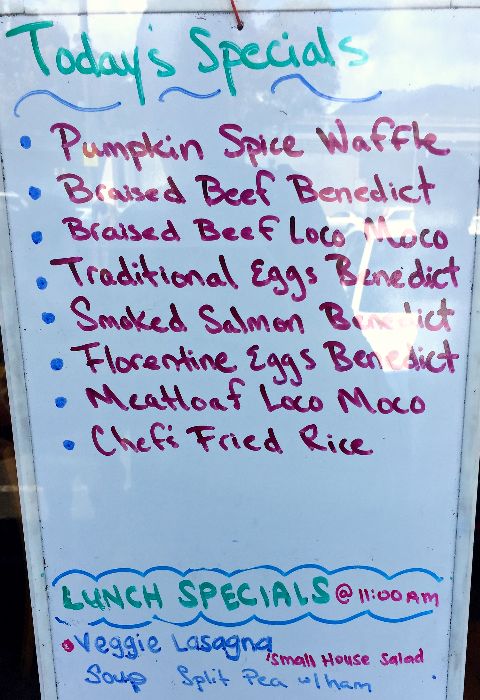 Today's Specials
• Pumpkin Spice Waffle
• Braised Beef Benedict
• Braised Beef Loco Moco
• Traditional Eggs Benedict
• Smoked Salmon Benedict
• Florentine Eggs Benedict
• Meatloaf Loco Moco
• Chef's Fried Rice
LUNCH SPECIALS @ 11:00AM
• Veggie Lasagna
'Small House Salad
Soup Split Pea w/ham